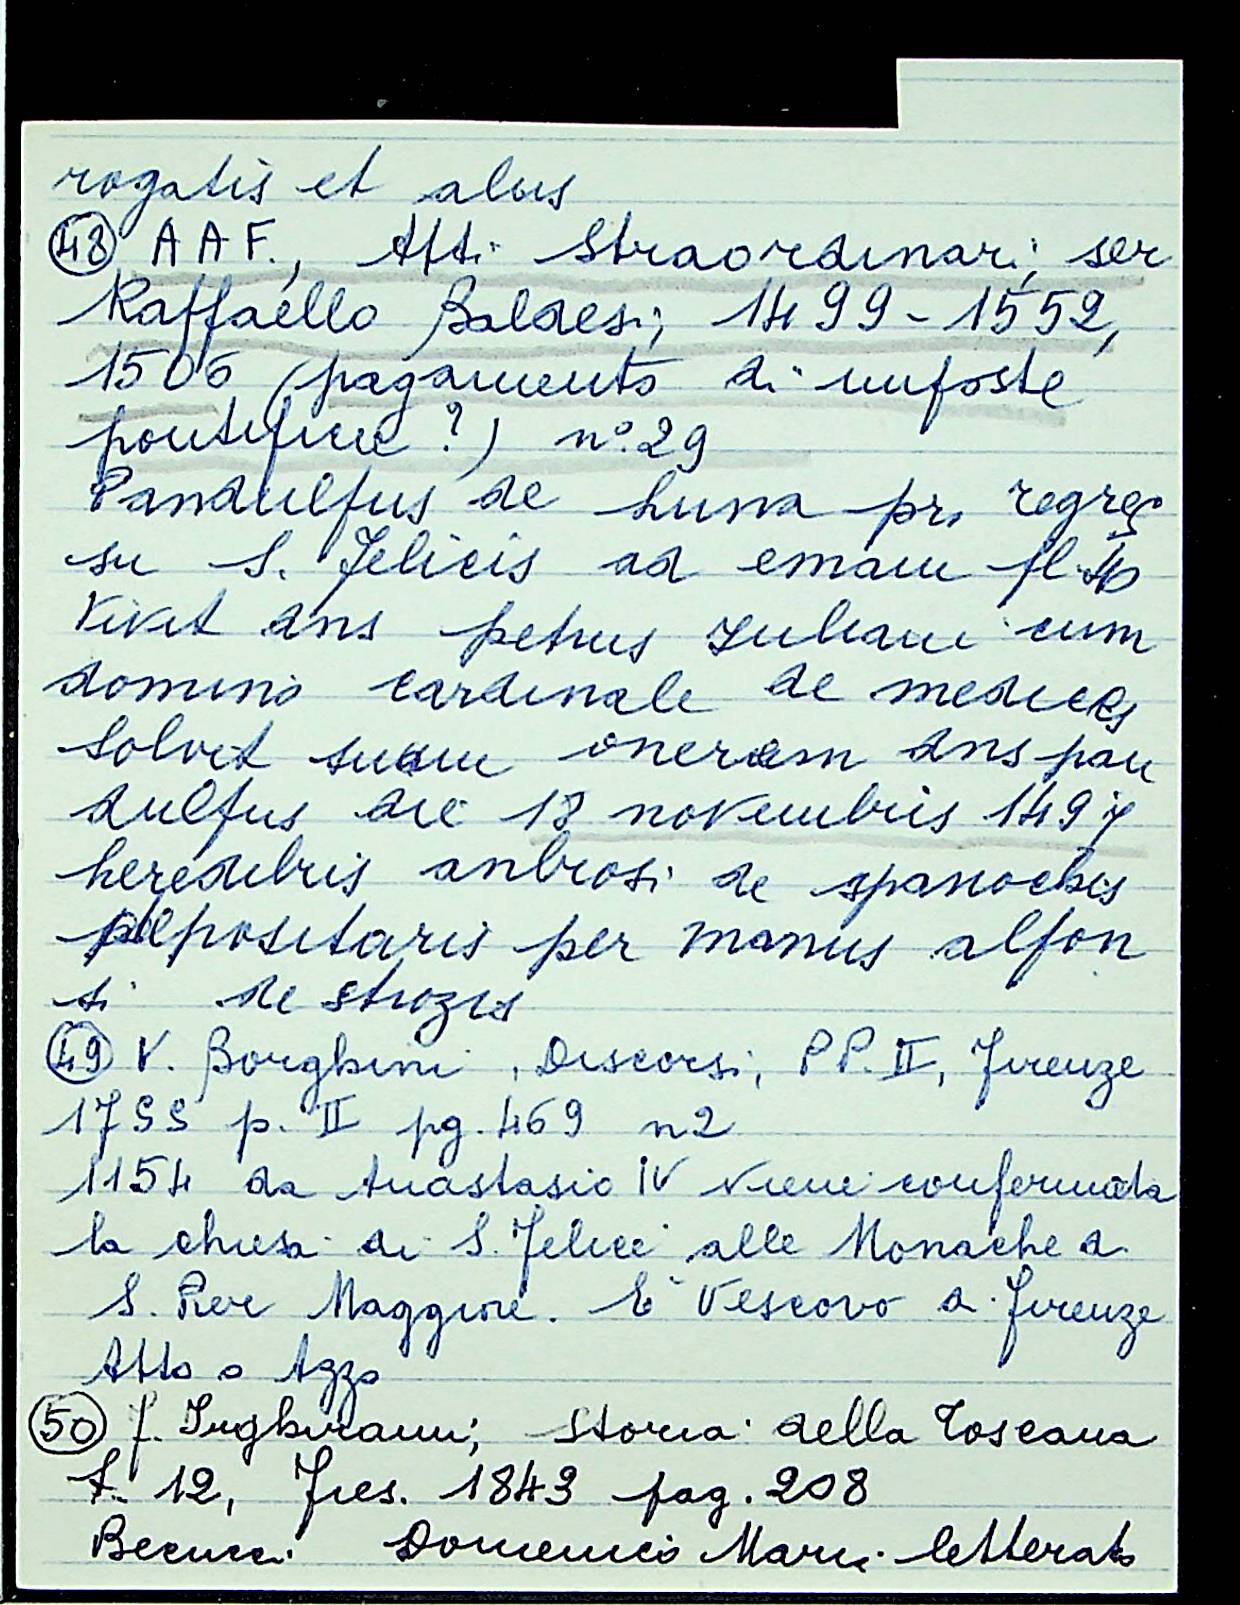 rogatis et alus
48 A A F., Atti Straordinari, ser
Raffaello Baldesi, 1499-1552,
1506 (pagamento di imposte
pontificie?) n° 29
Pandulfus de Luna pr, regres
su S. Felicis ad emam fl.
Vivit dns petrus Juliani cum
domino cardinale de medices
Solvit suam oneram dns pan
dulfus die 18 novembris 1497
heredibris anbrosi de spanochis
per manus alfon
si de strozis
49 V. Borghini, Discorsi, PP. II, Firenze
1755 p. II pg. 469 n2
1154 da Anastasio IV viene confermata
la chiesa di S. Felice alle Monache di
S. Pier Maggiore. È Vescovo di Firenze
Atto o Azzo
50 F. Inghirami, Storia della Toscana
t. 12, Fies. 1843 pag. 208
Becucci Domenico Mari letterato